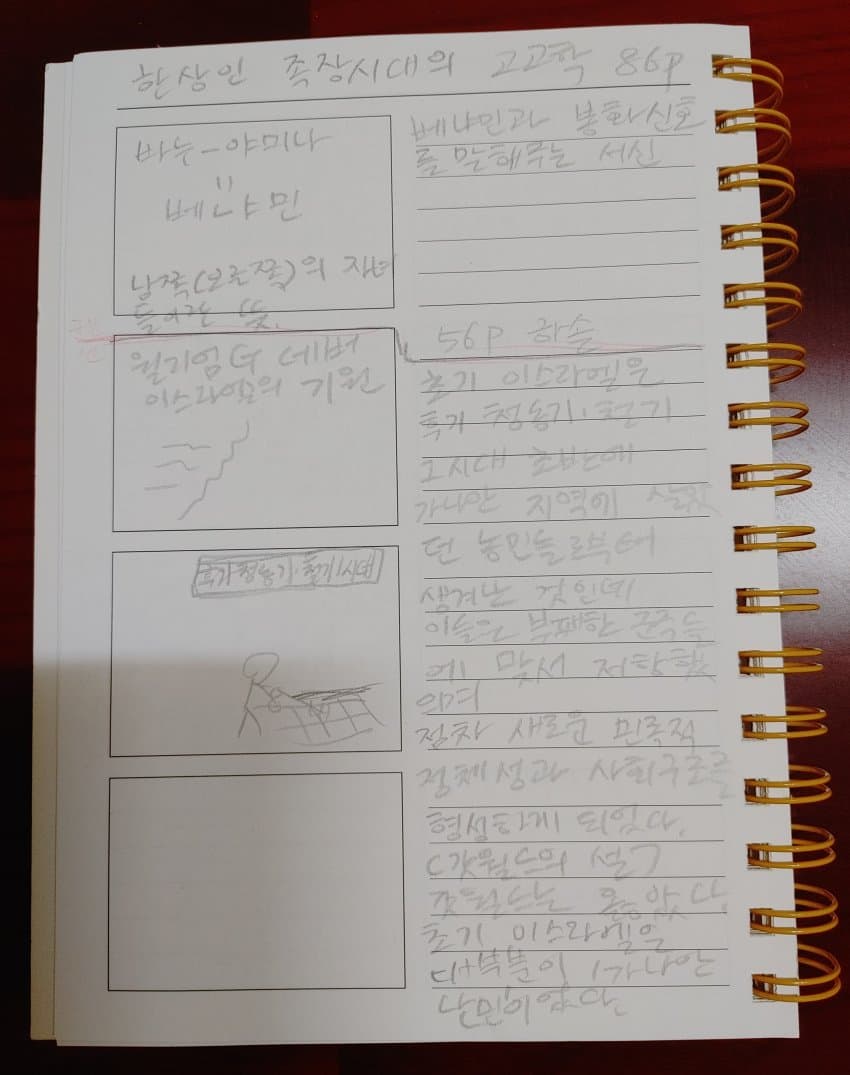 한상인 족장시대의 고고학 86p
바누-야미나
=
베냐민
남쪽(오른쪽)의 자녀
들이라는 뜻.
윌리엄 G 데버
이스라엘의 기원
후기 청동기·철기1시대
베냐민과 봉화신호
를 말해주는 서신
56p 하솔
초기 이스라엘은
후기 청동기·철기
1시대 초반에
가나안 지역에 살았
던 농민들로부터
생겨난 것인데
이들은 부패한 군주들
에 맞서 저항했
으며
점차 새로운 민족적
정체성과 사회구조를
형성하게 되었다.
(갓월드의 설)
갓월드는 옳았다.
초기 이스라엘은
대부분이 가나안
난민이었다